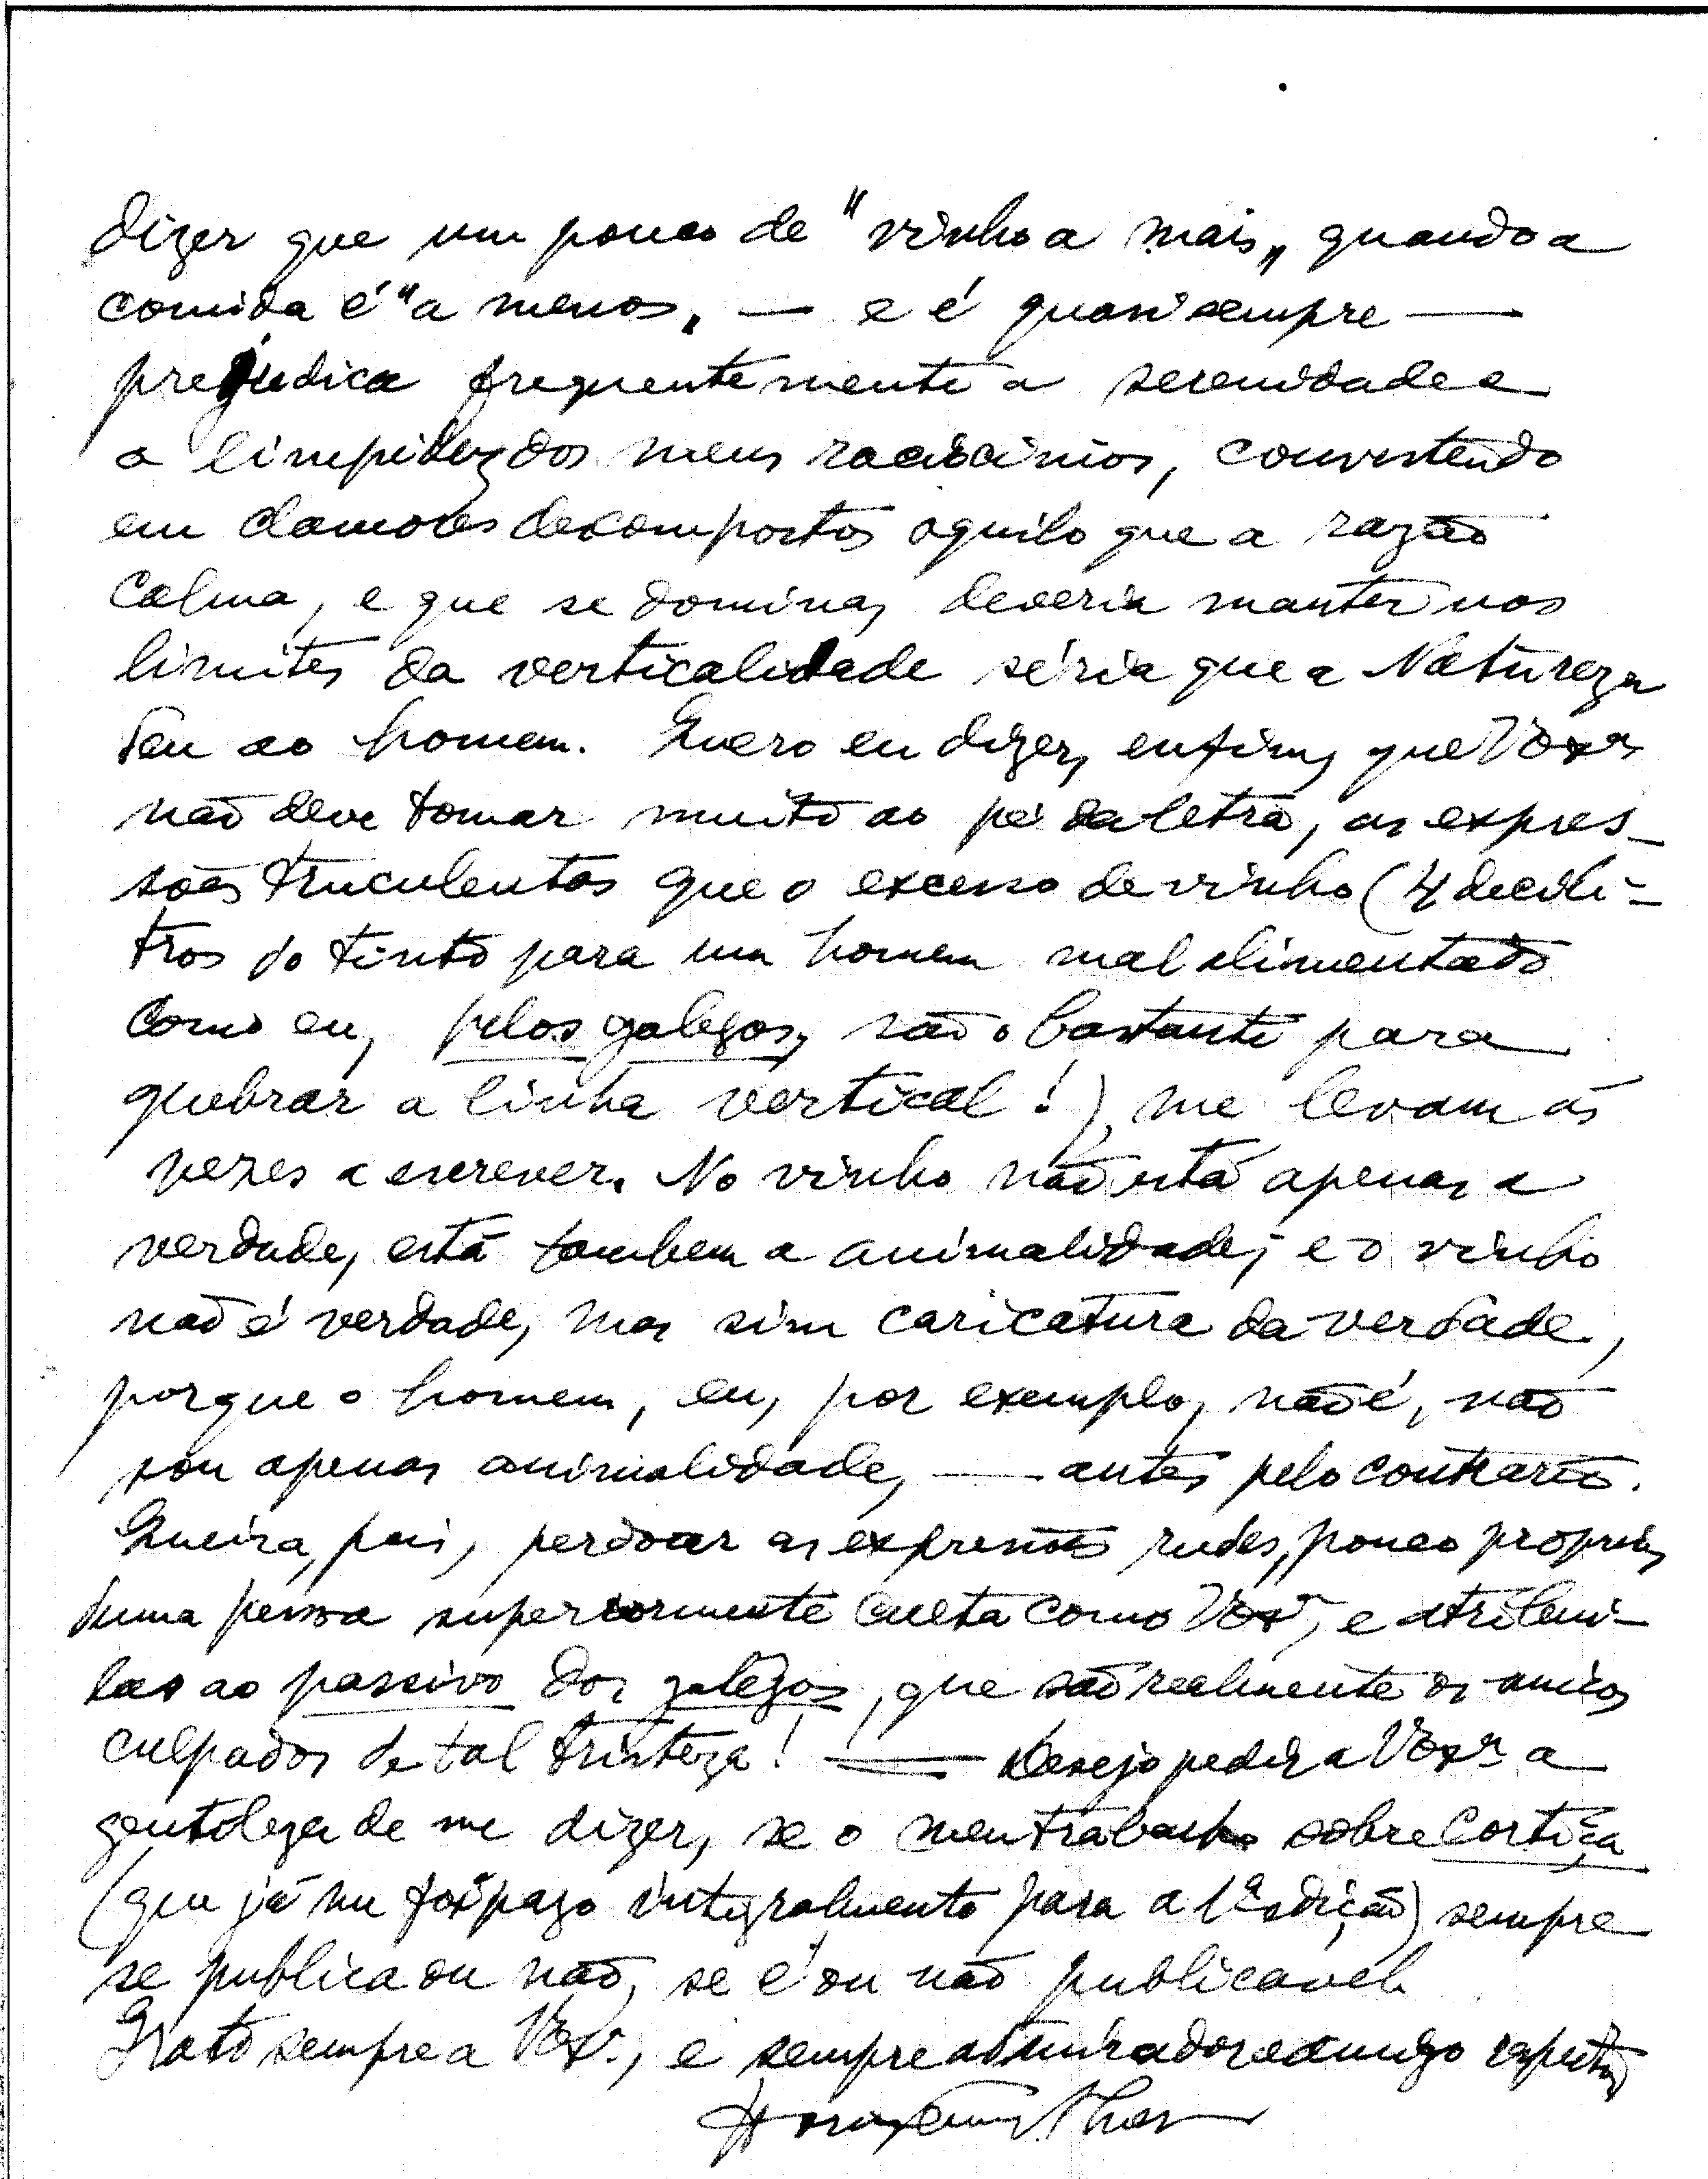 dizer que um pouco de "vinho a mais", quando a
comida é "a menos" — e é quasi sempre —
prejudica frequentemente a serenidade e
a limpidez dos meus raciocinios, convertendo
em clamores descompostos aquilo que a razão
calma, e que se domina, deveria manter nos
limites da verticalidade séria que a Natureza
deu ao homem. Quero eu dizer, enfim, que V. Exª
não deve tomar muito ao pé da letra, as expres-
sões truculentas que o excesso de vinho (4 decili-
tros do tinto para um homem mal alimentado
como eu, pelos galegos, são o bastante para
quebrar a linha vertical!), me levam ás
vezes a escrever. No vinho não está apenas a
verdade, está tambem a animalidade; e o vinho
não é verdade, mas sim caricatura da verdade,
porque o homem, eu, por exemplo, não é, não
sou apenas animalidade, — antes pelo contrario.
Queira, pois, perdoar as expressões rudes, pouco proprias
duma pessoa superiormente culta como V. Exª, e atribui-
las ao passivo dos galegos, que são realmente os unicos
culpados de tal tristeza! — Desejo pedir a V. Exª a
gentileza de me dizer, se o meu trabalho sobre Cortiça
(que já me foi pago integralmente para a 1ª edição) sempre
se publica ou não, se é ou não publicavel.
Grato sempre a V. Ex., e sempre admirador e amigo